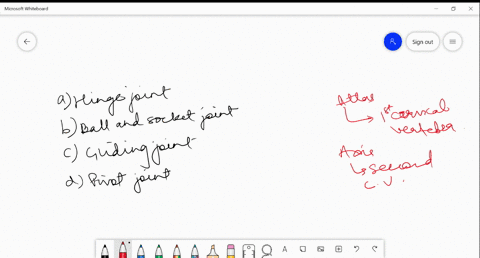 Microsoft Whiteboard
Sign out
a) Hinge joint
b) Ball and socket joint
c) Gliding joint
d) Pivot joint
Atlas
1st cervical
vertebra
Axis
second
C.V.
A